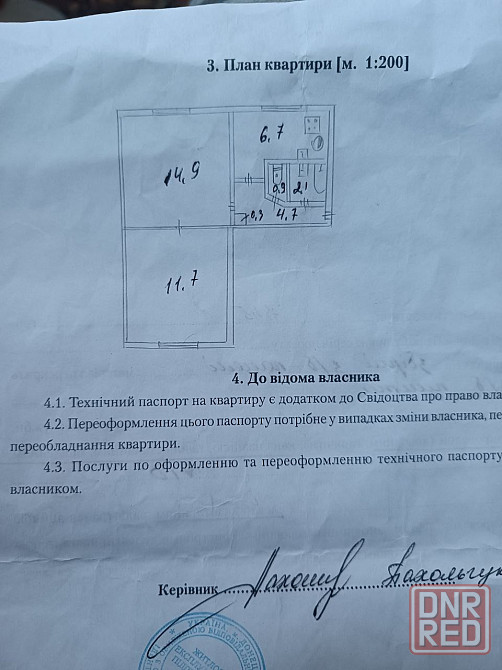 3. План квартири [м. 1:200]
6,7
14,9
0,9
2,1
0,3
4,7
11,7
4. До відома власника
4.1. Технічний паспорт на квартиру є додатком до Свідоцтва про право вла
4.2. Переоформлення цього паспорту потрібне у випадках зміни власника, пе
переобладнання квартири.
4.3. Послуги по оформленню та переоформленню технічного паспорту
власником.
Керівник
DNR
RED
УКРАЇНА